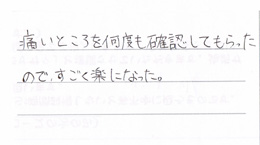 痛いところを何度も確認してもらった
ので、すごく楽になった。